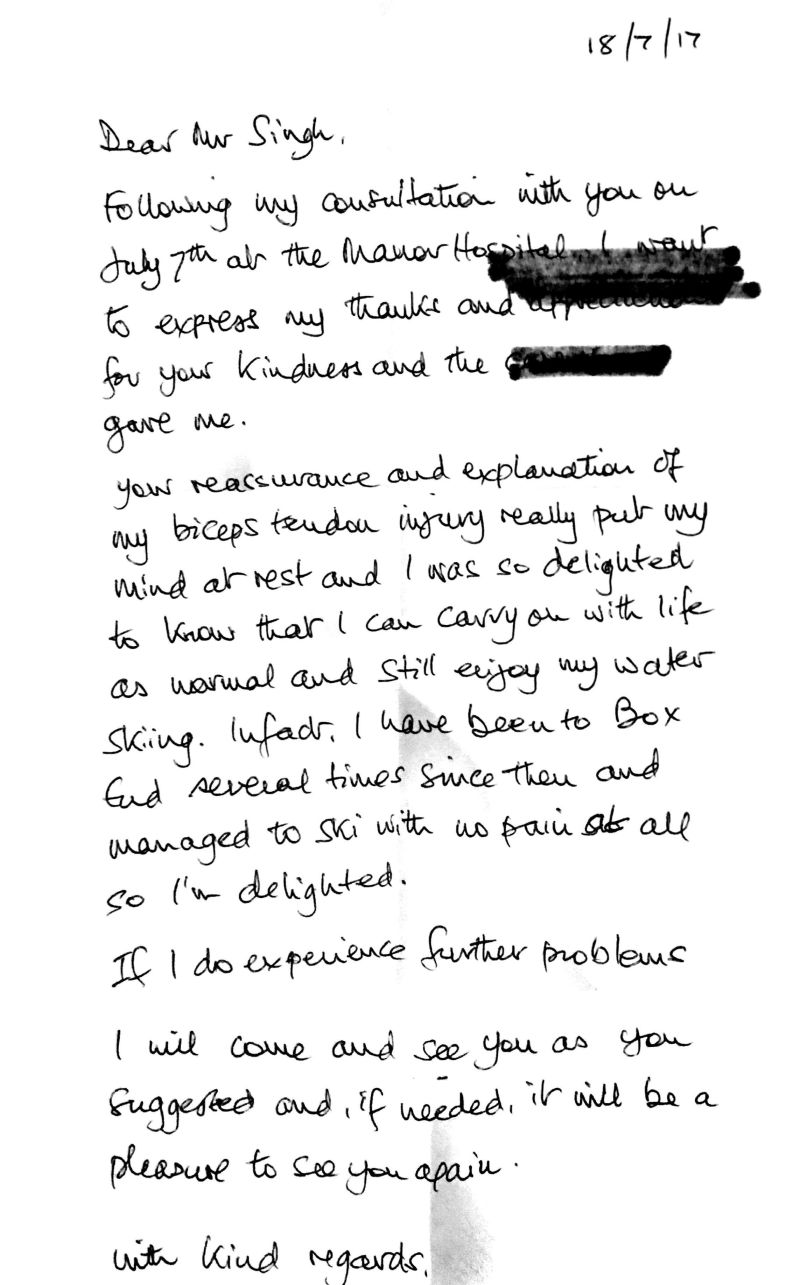 18/7/17
Dear Mr Singh,
Following my consultation with you on
July 7th at the Manor Hospital, I want
to express my thanks and
for your kindness and the
gave me.
your reassurance and explanation of
my biceps tendon injury really put my
mind at rest and I was so delighted
to know that I can carry on with life
as normal and still enjoy my water
skiing. Infact, I have been to Box
End several times since then and
managed to ski with no pain at all
so I'm delighted.
If I do experience further problems
I will come and see you as you
suggested and, if needed, it will be a
pleasure to see you again.
with kind regards,